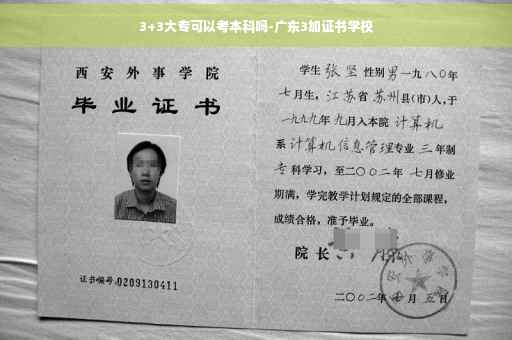 3+3大专可以考本科吗-广东3加证书学校
西安外事学院
毕业证书
证书编号:0209130411
学生 张坚 性别 男 一九八〇年
七月生，江苏省 苏州县(市)人，于
一九九九年 九月入本院 计算机
系 计算机信息管理专业 三 年制
专科学习，至二〇〇二年 七月修业
期满，学完教学计划规定的全部课程，
成绩合格，准予毕业。
院长
二〇〇二年 月 五日